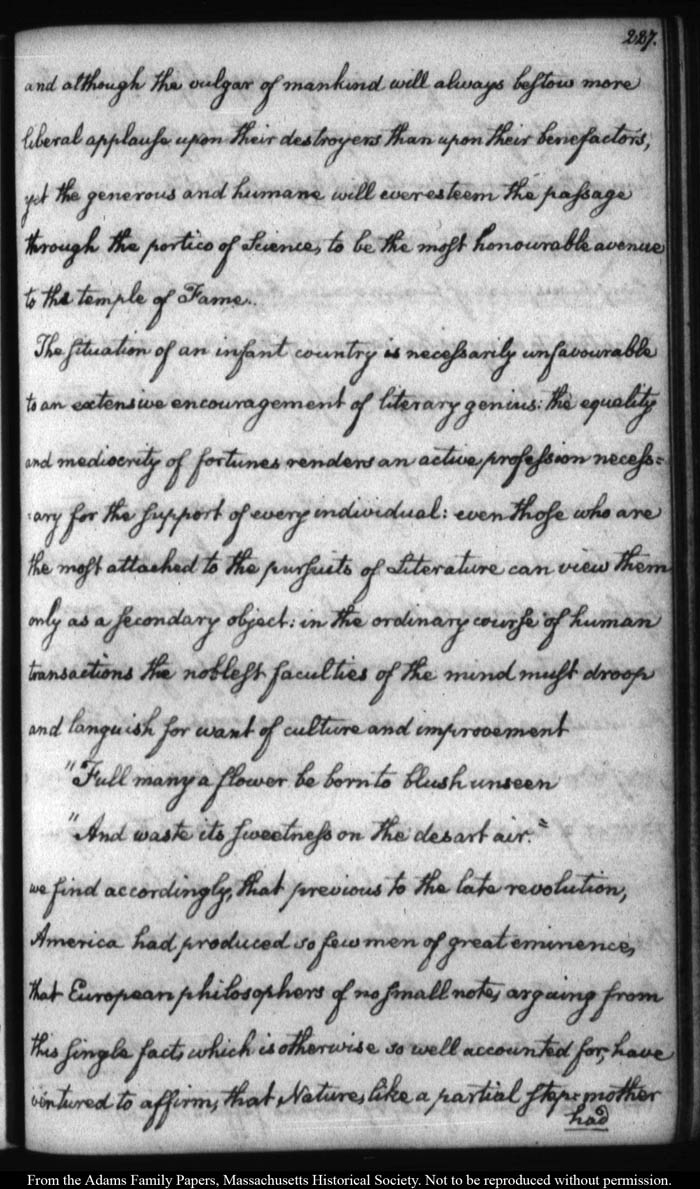 227.
and although the vulgar of mankind will always beſtow more
liberal applauſe upon their destroyers than upon their benefactors,
yet the generous and humane will ever esteem the paſsage
through the portico of Science, to be the moſt honourable avenue
to the temple of Fame..
The ſituation of an infant country is neceſsarily unfavourable
to an extensive encouragement of literary genius: the equality
and mediocrity of fortunes renders an active profeſsion neceſs=
=ary for the ſupport of every individual: even thoſe who are
the moſt attached to the purſuits of Literature can view them
only as a ſecondary object: in the ordinary courſe of human
transactions the nobleſt faculties of the mind muſt droop
and languish for want of culture and improvement
"Full many a flower be born to blush unseen
"And waste its ſweetneſs on the desart air."
we find accordingly, that previous to the late revolution,
America had produced so few men of great eminence,
that European philosophers of no ſmall note, arguing from
this ſingle fact, which is otherwise so well accounted for, have
ventured to affirm, that Nature, like a partial ſtep=mother
had
From the Adams Family Papers, Massachusetts Historical Society. Not to be reproduced without permission.